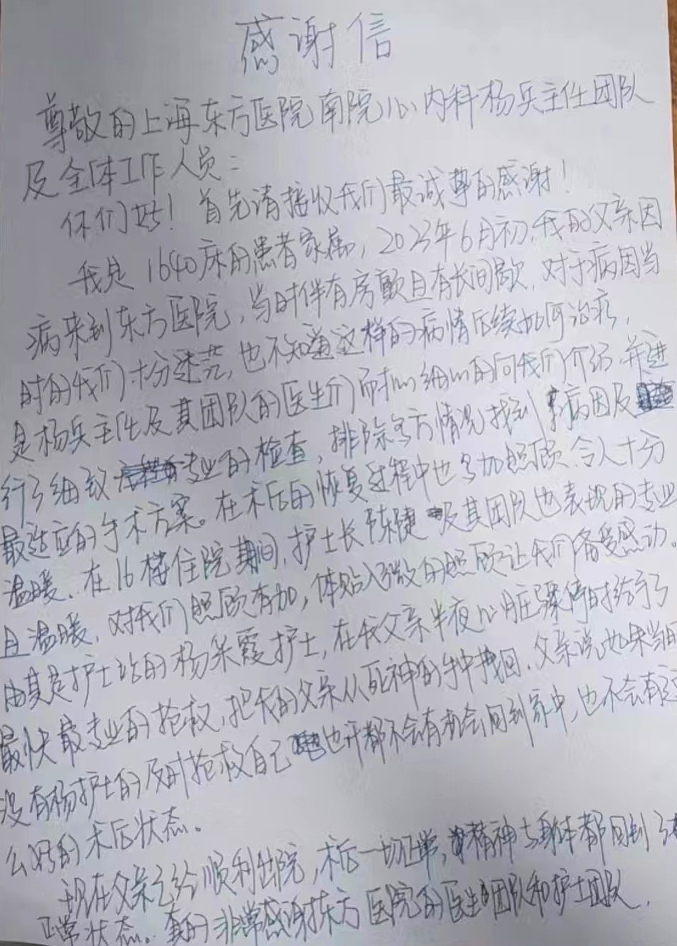 感谢信
尊敬的上海东方医院南院心内科杨兵主任团队
及全体工作人员：
你们好！首先请接收我们最诚挚的感谢！
我是1640床的患者家属，2023年6月初，我的父亲因
病来到东方医院，当时伴有房颤且有长间歇，对于病因当
时的我们十分迷茫，也不知道这样的病情后续如何治疗，
是杨兵主任及其团队的医生们耐心细心的向我们介绍，并进
行了细致专业的检查，排除多方情况找到病因及
最适应的手术方案。在术后的恢复过程中也多加照顾，令人十分
温暖。在16楼住院期间，护士长陈婕及其团队也表现的专业
且温暖，对我们照顾有加，体贴入微的照顾让我们备受感动。
由其是护士站的杨采霞护士，在我父亲半夜心脏骤停时给予了
最快最专业的抢救，把我的父亲从死神的手中拽回，父亲说如果当时
没有杨护士的及时抢救自己也许都不会有机会回到家中，也不会有这
么好的术后状态。
现在父亲已经顺利出院，术后一切正常，精神与身体都回到了
正常状态。真的非常感谢东方医院的医生团队和护士团队，